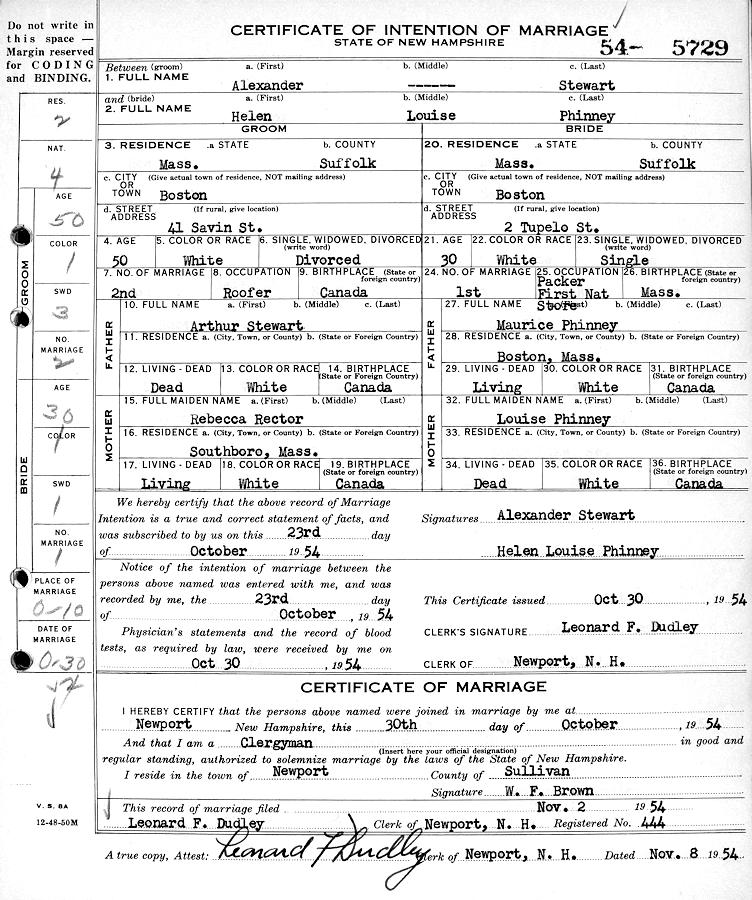 Do not write in
this space —
Margin reserved
for CODING
and BINDING.
CERTIFICATE OF INTENTION OF MARRIAGE
STATE OF NEW HAMPSHIRE
54- 5729
Between (groom) a. (First) b. (Middle) c. (Last)
1. FULL NAME
Alexander ------ Stewart
and (bride) a. (First) b. (Middle) c. (Last)
2. FULL NAME
Helen Louise Phinney
GROOM BRIDE
3. RESIDENCE .a STATE b. COUNTY 20. RESIDENCE .a STATE b. COUNTY
Mass. Suffolk Mass. Suffolk
c. CITY OR TOWN (Give actual town of residence, NOT mailing address) c. CITY OR TOWN (Give actual town of residence, NOT mailing address)
Boston Boston
d. STREET ADDRESS (If rural, give location) d. STREET ADDRESS (If rural, give location)
41 Savin St. 2 Tupelo St.
4. AGE 5. COLOR OR RACE 6. SINGLE, WIDOWED, DIVORCED (write word) 21. AGE 22. COLOR OR RACE 23. SINGLE, WIDOWED, DIVORCED (write word)
50 White Divorced 30 White Single
7. NO. OF MARRIAGE 8. OCCUPATION 9. BIRTHPLACE (State or foreign country) 24. NO. OF MARRIAGE 25. OCCUPATION 26. BIRTHPLACE (State or foreign country)
2nd Roofer Canada 1st Packer First Nat Store Mass.
FATHER
10. FULL NAME a. (First) b. (Middle) c. (Last) 27. FULL NAME b. (Middle) c. (Last)
Arthur Stewart Maurice Phinney
11. RESIDENCE a. (City, Town, or County) b. (State or Foreign Country) 28. RESIDENCE a. (City, Town, or County) b. (State or Foreign Country)
Boston, Mass.
12. LIVING - DEAD 13. COLOR OR RACE 14. BIRTHPLACE (State or foreign Country) 29. LIVING - DEAD 30. COLOR OR RACE 31. BIRTHPLACE (State or foreign country)
Dead White Canada Living White Canada
MOTHER
15. FULL MAIDEN NAME a. (First) b. (Middle) (Last) 32. FULL MAIDEN NAME a. (First) b. (Middle) (Last)
Rebecca Rector Louise Phinney
16. RESIDENCE a. (City, Town, or County) b. (State or Foreign Country) 33. RESIDENCE a. (City, Town, or County) b. (State or Foreign Country)
Southboro, Mass.
17. LIVING - DEAD 18. COLOR OR RACE 19. BIRTHPLACE (State or foreign country) 34. LIVING - DEAD 35. COLOR OR RACE 36. BIRTHPLACE (State or foreign country)
Living White Canada Dead White Canada
FATHER
MOTHER
RES.
2
NAT.
4
GROOM
AGE
50
COLOR
1
SWD
3
NO. MARRIAGE
2
BRIDE
AGE
30
COLOR
1
SWD
1
NO. MARRIAGE
1
PLACE OF MARRIAGE
0-10
DATE OF MARRIAGE
0-30
54
V. S. 8A
12-48-50M
We hereby certify that the above record of Marriage
Intention is a true and correct statement of facts, and
was subscribed to by us on this 23rd day
of October 19 54
Signatures Alexander Stewart
Helen Louise Phinney
Notice of the intention of marriage between the
persons above named was entered with me, and was
recorded by me, the 23rd day
of October, 19 54
Physician's statements and the record of blood
tests, as required by law, were received by me on
Oct 30, 19 54
This Certificate issued Oct 30, 19 54
CLERK'S SIGNATURE Leonard F. Dudley
CLERK OF Newport, N. H.
CERTIFICATE OF MARRIAGE
I HEREBY CERTIFY that the persons above named were joined in marriage by me at
Newport New Hampshire, this 30th day of October, 19 54
And that I am a Clergyman in good and
(Insert here your official designation)
regular standing, authorized to solemnize marriage by the laws of the State of New Hampshire.
I reside in the town of Newport County of Sullivan
Signature W. F. Brown
This record of marriage filed Nov. 2 19 54
Leonard F. Dudley Clerk of Newport, N. H. Registered No. 444
A true copy, Attest: Leonard F Dudley Clerk of Newport, N. H. Dated Nov. 8 19 54